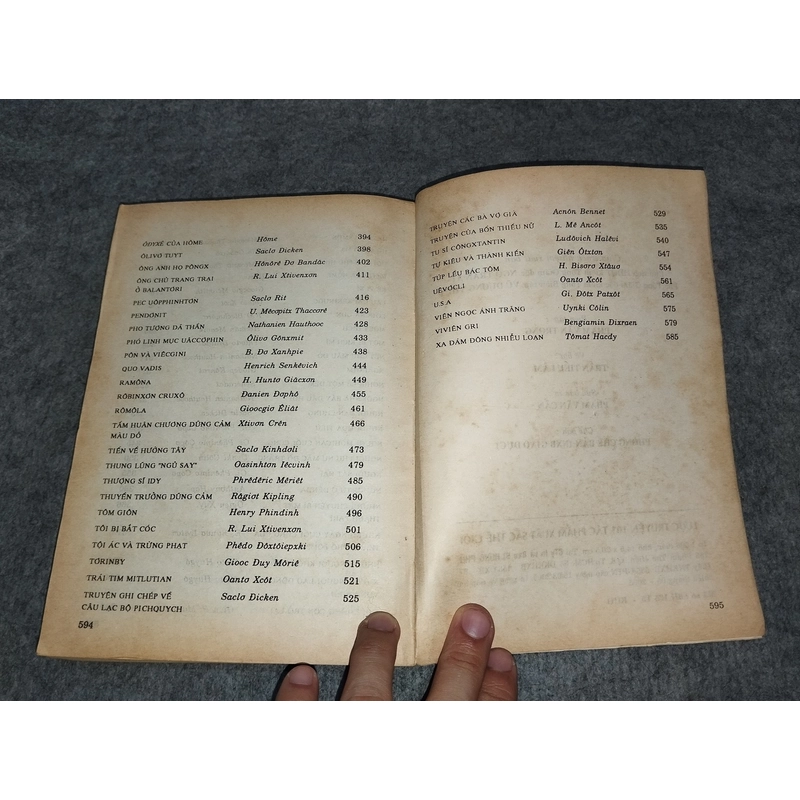 ÔĐYXÊ CỦA HÔME Hôme 394
ÔLIVƠ TUYT Saclơ Dicken 398
ÔNG ANH HỌ PÔNGX Hônôrê Đơ Bandăc 402
ÔNG CHỦ TRANG TRẠI R. Lui Xtivenxơn 411
Ở BALANTORI
PEC UÔPPHINHTƠN Saclơ Rit 416
PENĐƠNIT U. Mêcơpitx Thaccơrê 423
PHO TƯỢNG ĐÁ THẦN Nathanien Hauthooc 428
PHÓ LINH MỤC UÂCCƠPHIN Ôlivơ Gônxmit 433
PÔN VÀ VIÊCGINI B. Đơ Xanhpie 438
QUO VADIS Henrich Senkêvich 444
RAMÔNA H. Hunto Giăcxơn 449
RÔBINXƠN CRUXÔ Danien Đơphô 455
RÔMÔLA Gioocgiơ Êliât 461
TẤM HUÂN CHƯƠNG DŨNG CẢM Xtivơn Crên 466
MÀU ĐỎ
TIẾN VỀ HƯỚNG TÂY Saclơ Kinhdơli 473
THUNG LŨNG "NGỦ SAY" Oasinhtơn Iêcvinh 479
THƯỢNG SĨ IDY Phrêđêric Mêriêt 485
THUYỀN TRƯỞNG DŨNG CẢM Râgiơt Kipling 490
TÔM GIÔN Henry Phindinh 496
TÔI BỊ BẮT CÓC R. Lui Xtivenxơn 501
TỘI ÁC VÀ TRỪNG PHẠT Phêđo Đôxtôiepxki 506
TƠRINBY Giooc Duy Môriê 515
TRÁI TIM MITLUTIAN Oantơ Xcôt 521
TRUYỆN GHI CHÉP VỀ Saclơ Đicken 525
CÂU LẠC BỘ PICHQUYCH
594
TRUYỆN CÁC BÀ VỢ GIÀ Acnôn Bennet 529
TRUYỆN CỦA BỐN THIẾU NỮ L. Mê Ancôt 535
TU SĨ CÔNGXTANTIN Luđôvich Halêvi 540
TỰ KIÊU VÀ THÀNH KIẾN Giên Ôtxtơn 547
TÚP LỀU BÁC TÔM H. Bisơrơ Xtâuơ 554
UÊVƠCLI Oantơ Xcôt 561
U.S.A Gi. Đôtx Patxôt 565
VIÊN NGỌC ÁNH TRĂNG Uynki Côlin 575
VIVIÊN GRI Bengiamin Dixraen 579
XA ĐÁM ĐÔNG NHIỄU LOẠN Tômat Hacđy 585
595